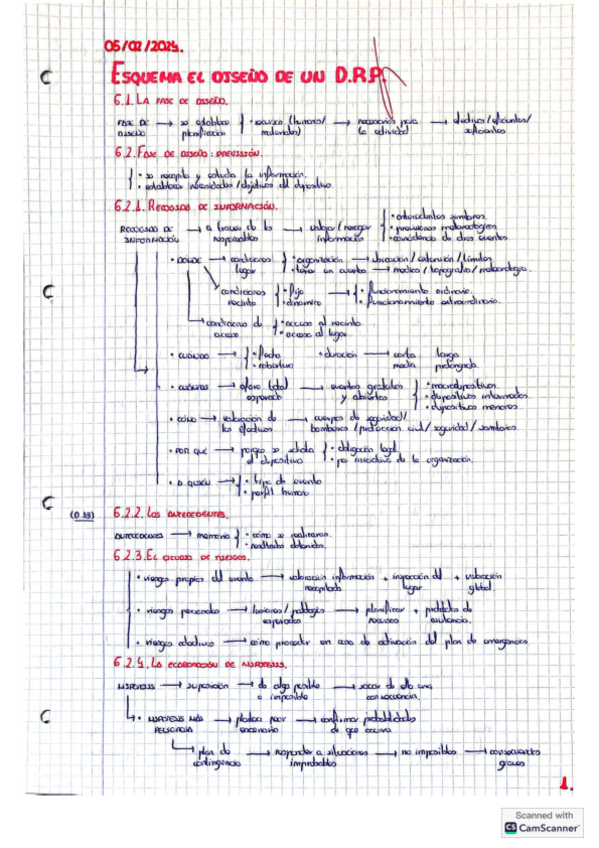 05/02/2024.
ESQUEMA EL DISEÑO DE UN D.R.P.
6.1. LA FASE DE DISEÑO.
FASE DE DISEÑO → se establece planificación { • recursos (humanos/materiales) → necesarios para la actividad → efectivos/eficientes/suficientes
6.2. FASE DE DISEÑO: PREVISIÓN.
• se recopila y estudia la información.
• establecer necesidades/objetivos del dispositivo.
6.2.1. RECOGIDA DE INFORMACIÓN.
RECOGIDA DE INFORMACIÓN → a través de los responsables → información
• antecedentes similares.
• previsiones meteorológicas
• coincidencia de otros eventos.
• DÓNDE → condiciones lugar { • organización → ubicación/extensión/límites
• evento → medios/topografía/meteorología.
condiciones recinto { • fijo • dinámico → { • funcionamiento ordinario. • funcionamiento extraordinario.
condiciones de acceso { • acceso al recinto • acceso al lugar
• CUÁNDO → { • fecha • horario • duración → corta media larga prolongada
• CUÁNTOS → aforo total esperado → eventos grandes y abiertos { • macrodispositivos • dispositivos intermedios • dispositivos menores.
• CÓMO → de los efectivos → cuerpos de seguridad/bomberos/protección civil/seguridad/sanitarios
• POR QUÉ → porque se solicita el dispositivo { • obligación legal • por iniciativa de la organización.
• A QUIÉN → { • tipo de evento • perfil humano
(0.39)
6.2.2. LOS ANTECEDENTES.
ANTECEDENTES → memoria { • cómo se realizaron. • resultados obtenidos.
6.2.3. EL CÁLCULO DE RIESGOS.
• riesgos propios del evento → valoración información recopilada + inspección del lugar + valoración global.
• riesgos personales → lesiones/patologías esperadas → planificar recursos + protocolos de asistencia.
• riesgos efectivos → cómo proceder en caso de activación del plan de emergencia.
6.2.4. LA ELABORACIÓN DE HIPÓTESIS.
HIPÓTESIS → suposición → de algo posible e imposible → sacar de ello una consecuencia.
• HIPÓTESIS MÁS PELIGROSA → plantea peor escenario → confirmar probabilidades de que ocurra
plan de contingencia → responder a situaciones improbables → no imposibles → consecuencias graves
1.
Scanned with
CS CamScanner